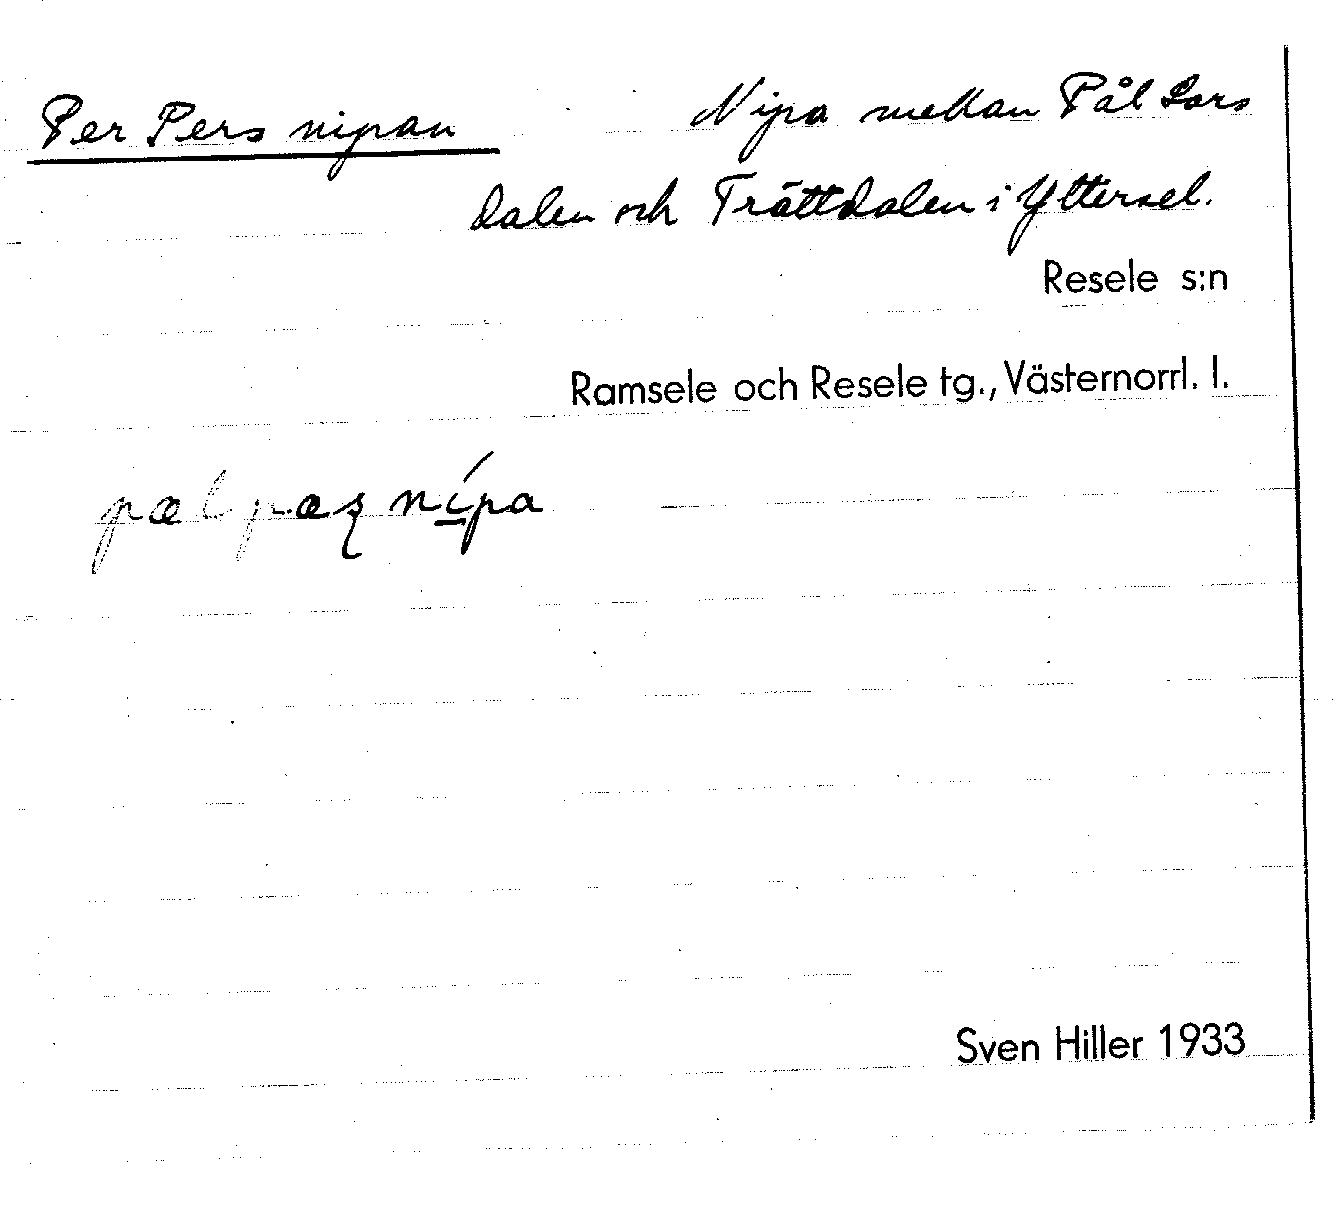 Per Pers nipan Nipa mellan Pål Lars
dalen och Trättdalen i Yttersel.
Resele s:n
Ramsele och Resele tg., Västernorrl. l.
nípa
Sven Hiller 1933